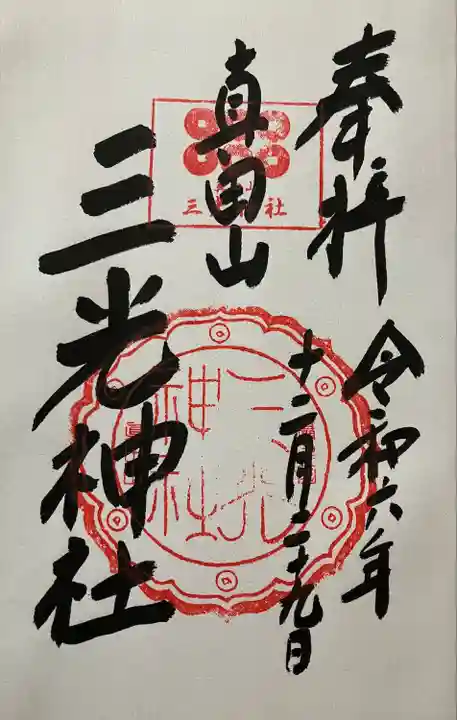 奉拝
令和六年
十二月二十九日
真田山
三光神社
三光神社